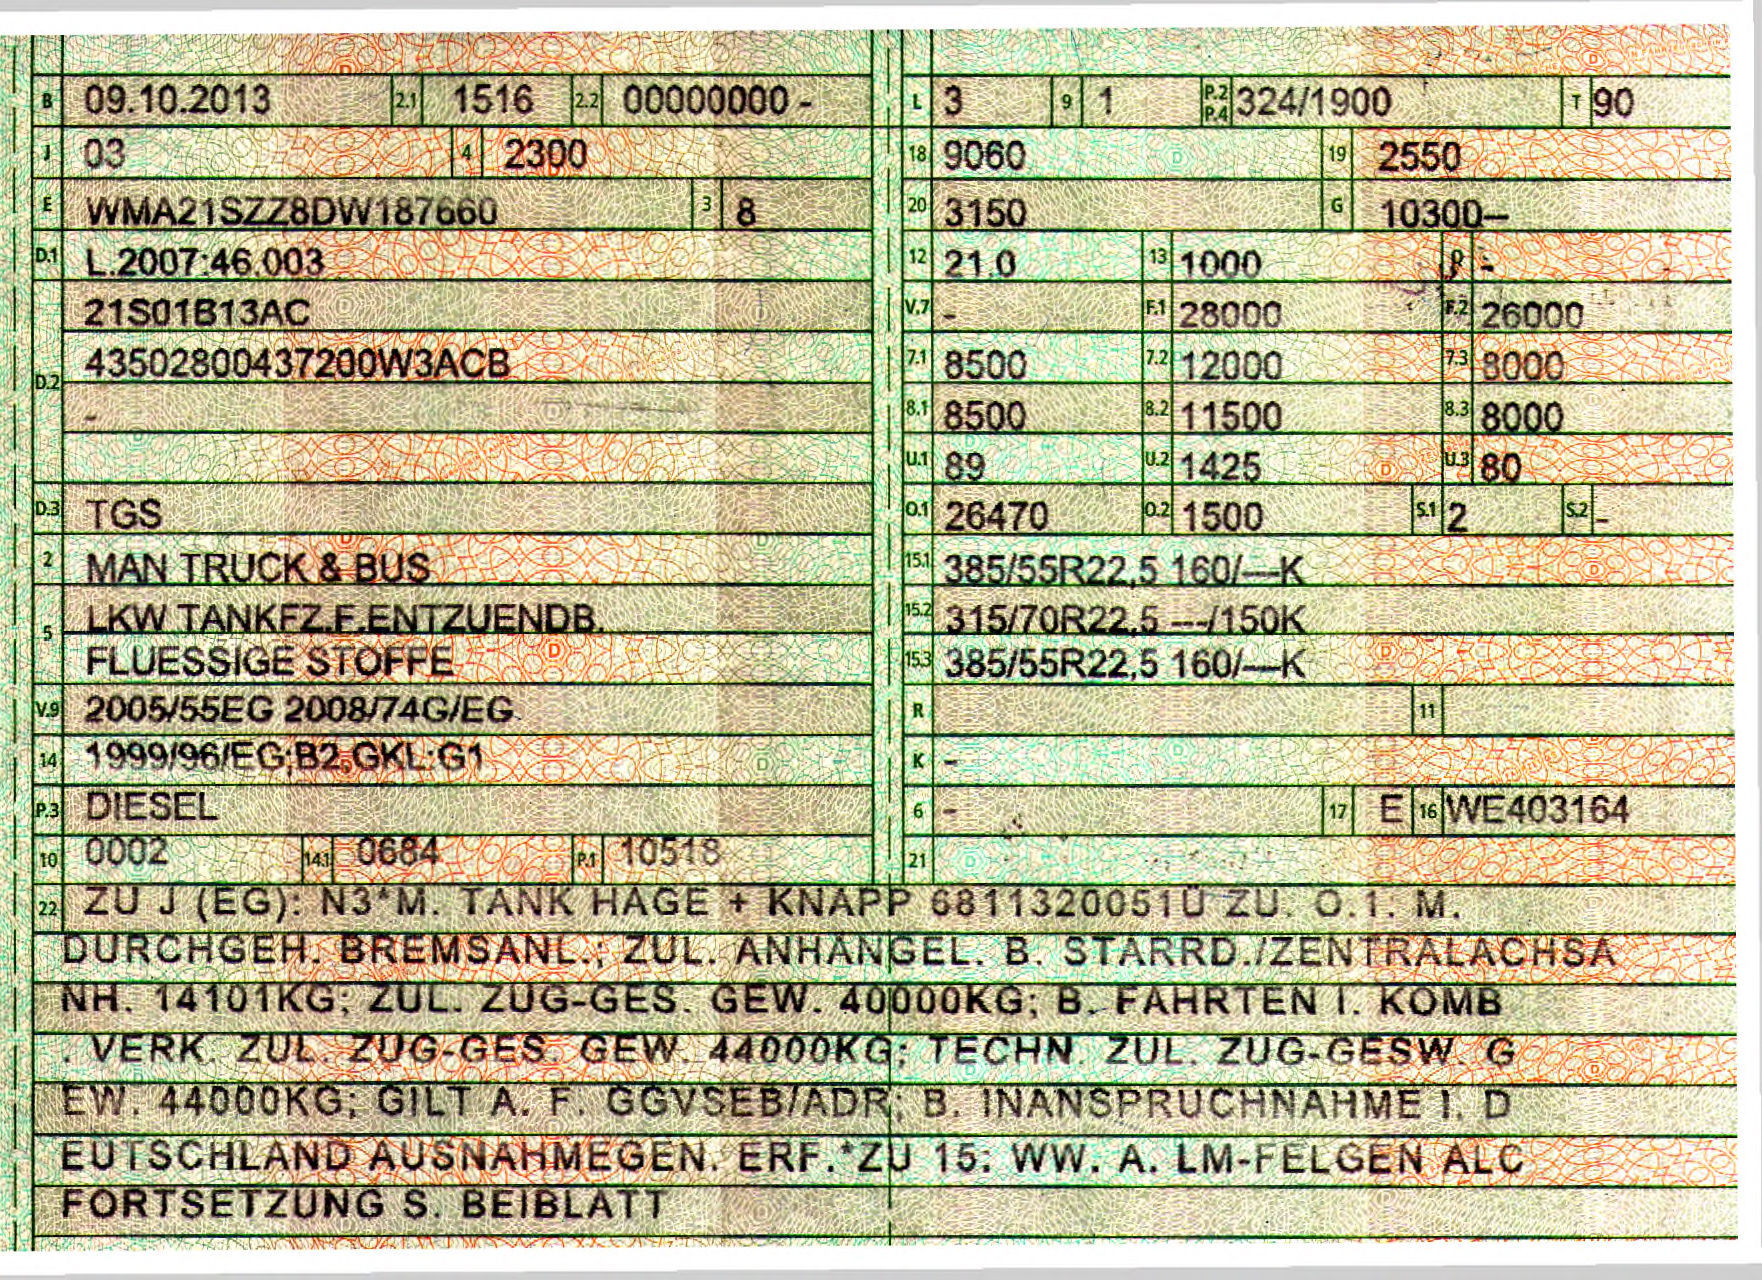 B 09.10.2013 2.1 1516 2.2 00000000 -
J 03 4 2300
E WMA21SZZ8DW187660 3 8
D.1 L.2007:46.003
21S01B13AC
D.2 43502800437200W3ACB
-
D.3 TGS
2 MAN TRUCK & BUS
5 LKW TANKFZ.F.ENTZUENDB.
FLUESSIGE STOFFE
V.9 2005/55EG 2008/74G/EG
14 1999/96/EG;B2,GKL:G1
P.3 DIESEL
10 0002 14.1 0684 P.1 10518
L 3 9 1 P.2 P.4 324/1900 T 90
18 9060 19 2550
20 3150 G 10300–
12 21.0 13 1000 Q -
V.7 - F.1 28000 F.2 26000
7.1 8500 7.2 12000 7.3 8000
8.1 8500 8.2 11500 8.3 8000
U.1 89 U.2 1425 U.3 80
O.1 26470 O.2 1500 S.1 2 S.2 -
15.1 385/55R22,5 160/—K
15.2 315/70R22,5 ---/150K
15.3 385/55R22,5 160/—K
R 11
K -
6 - 17 E 16 WE403164
21
22 ZU J (EG): N3*M. TANK HAGE + KNAPP 6811320051Ü ZU. O.1. M.
DURCHGEH. BREMSANL.; ZUL. ANHÄNGEL. B. STARRD./ZENTRALACHSA
NH. 14101KG; ZUL. ZUG-GES. GEW. 40000KG; B. FAHRTEN I. KOMB
. VERK. ZUL. ZUG-GES. GEW. 44000KG; TECHN. ZUL. ZUG-GESW. G
EW. 44000KG; GILT A. F. GGVSEB/ADR; B. INANSPRUCHNAHME I. D
EUTSCHLAND AUSNAHMEGEN. ERF.*ZU 15: WW. A. LM-FELGEN ALC
FORTSETZUNG S. BEIBLATT